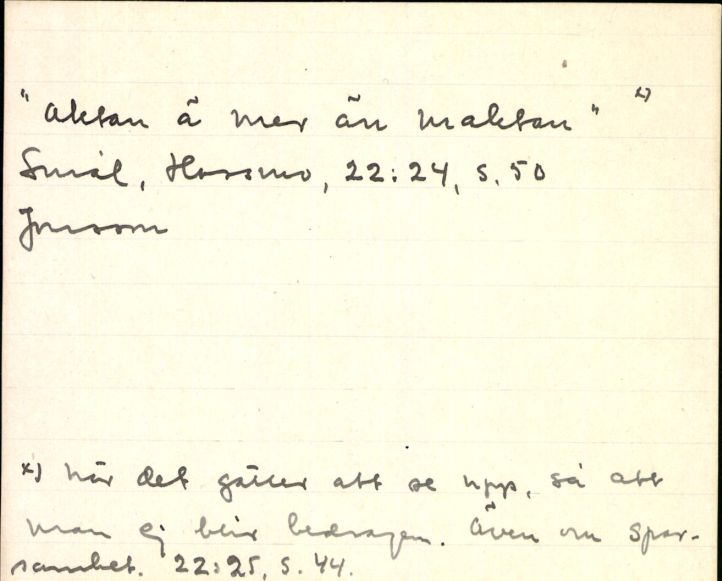 "aktan ä mer än maktan" x)
Smål, Hossmo, 22:24, s. 50
Jonsson
x) när det gäller att se upp, så att
man ej blir bedragen. Även om spar-
samhet. 22:25, s. 44.